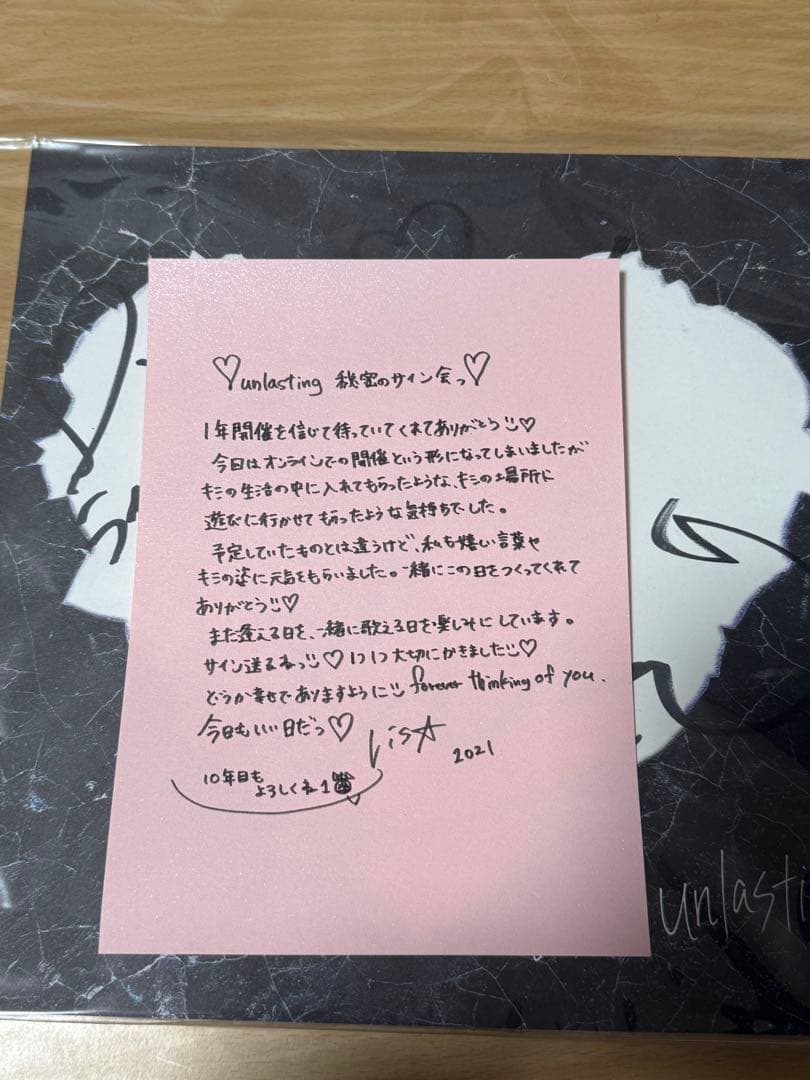 ♡unlasting 秘密のサイン会っ♡
1年開催を信じて待っていてくれてありがとう♡
今日はオンラインでの開催という形になってしまいましたが
キミの生活の中に入れてもらったような、キミの場所に
遊びに行かせてもらったような気持ちでした。
予定していたものとは違うけど、私も嬉しい言葉や
キミの姿に元気をもらいました。一緒にこの日をつくってくれて
ありがとう♡
また逢える日を、一緒に歌える日を楽しみにしています。
サイン送るねっ♡ 1つ1つ大切にかきました♡
どうか幸せでありますように forever thinking of you.
今日もいい日だっ♡
LiSA
2021
10年目も
よろしくね
unlasti